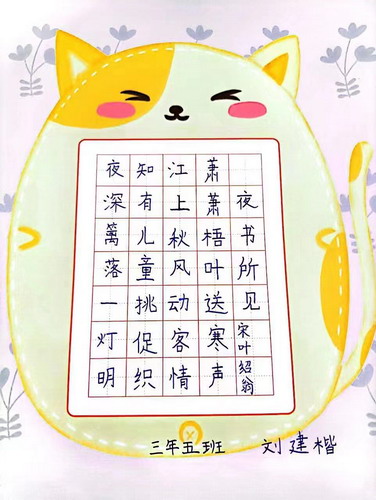 夜书所见 宋叶绍翁
萧萧梧叶送寒声
江上秋风动客情
知有儿童挑促织
夜深篱落一灯明
三年五班 刘建楷